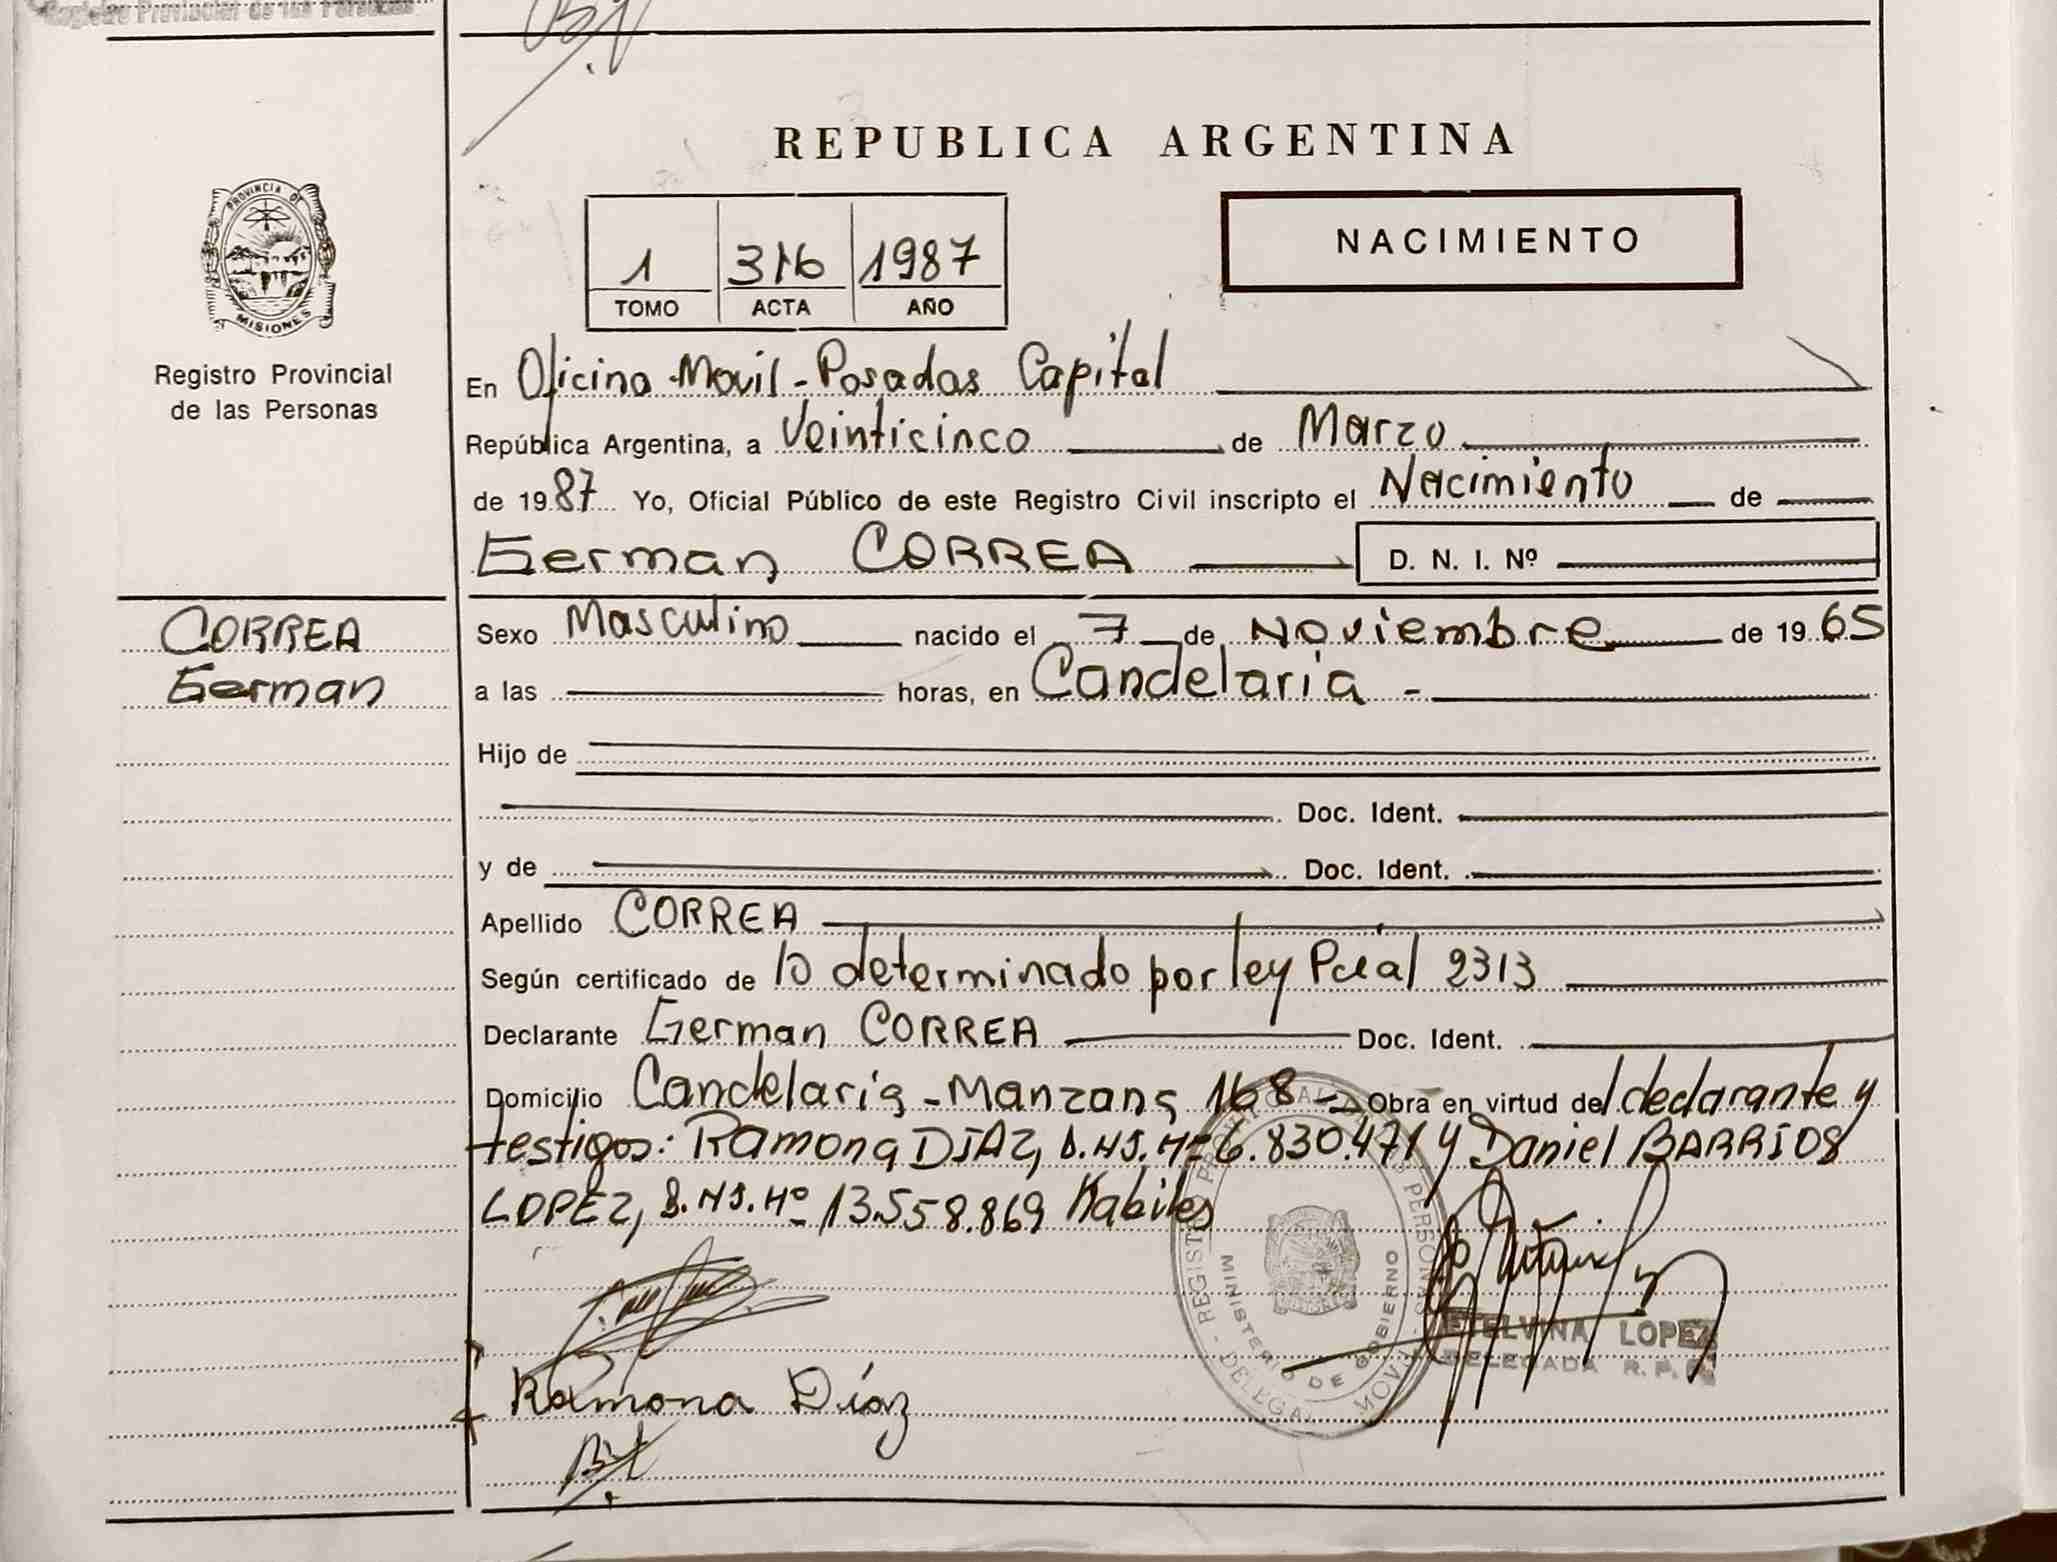 Registro Provincial de las Personas
REPUBLICA ARGENTINA
PROVINCIA DE
MISIONES
Registro Provincial
de las Personas
1 316 1987
TOMO ACTA AÑO
NACIMIENTO
En Oficina Movil - Posadas Capital
República Argentina, a Veinticinco de Marzo
de 1987 Yo, Oficial Público de este Registro Civil inscripto el Nacimiento de
German CORREA D. N. I. Nº
CORREA
German
Sexo Masculino nacido el 7 de Noviembre de 1965
a las horas, en Candelaria -
Hijo de
Doc. Ident.
y de Doc. Ident.
Apellido CORREA
Según certificado de lo determinado por ley Pcial 2313
Declarante German CORREA Doc. Ident.
Domicilio Candelaria - Manzana 168 - Obra en virtud del declarante y
testigos: Ramona DIAZ, D.NI.Nº 6.830.471 y Daniel BARRIOS
LOPEZ, D.NI.Nº 13.558.869 Habiles
REGISTRO PROVINCIAL DE LAS PERSONAS
MINISTERIO DE GOBIERNO
MOVIL
ETELVINA LOPEZ
DELEGADA R. P. P.
Ramona Díaz